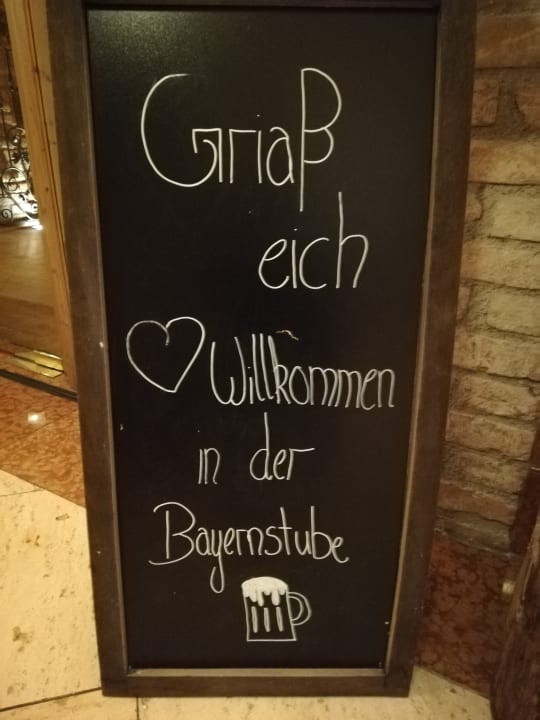 Griaß
eich
Willkommen
in der
Bayernstube